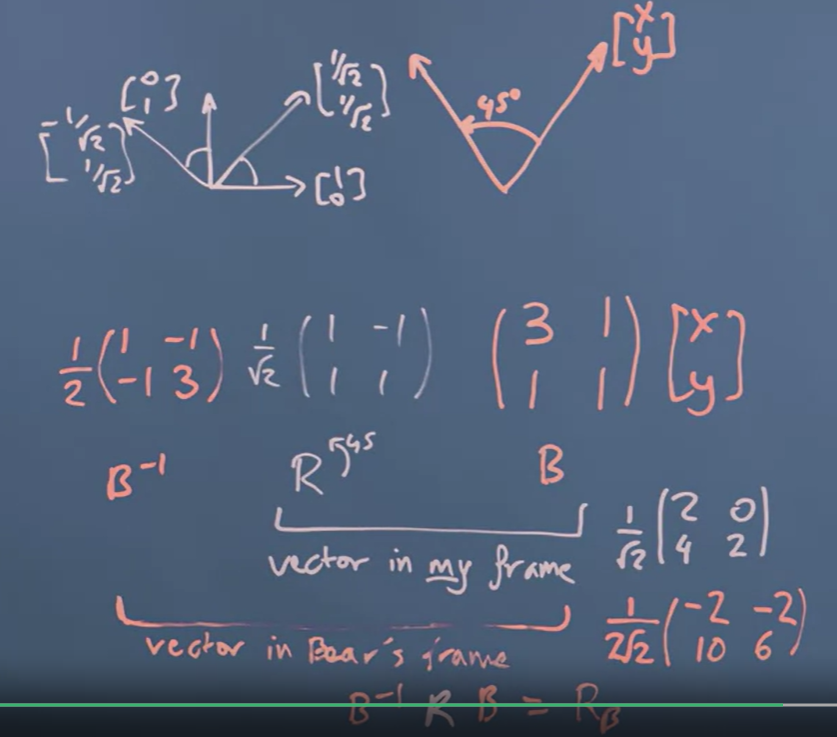 [0 1]
[-1/√2 1/√2]
[1/√2 1/√2]
[1 0]
45°
[x y]
1/2 (1 -1 -1 3) 1/√2 (1 -1 1 1) (3 1 1 1) [x y]
B⁻¹ R 45 B
vector in my frame 1/√2 (2 0 4 2)
vector in Bear's frame 1/2√2 (-2 -2 10 6)
B⁻¹ R B = R_B